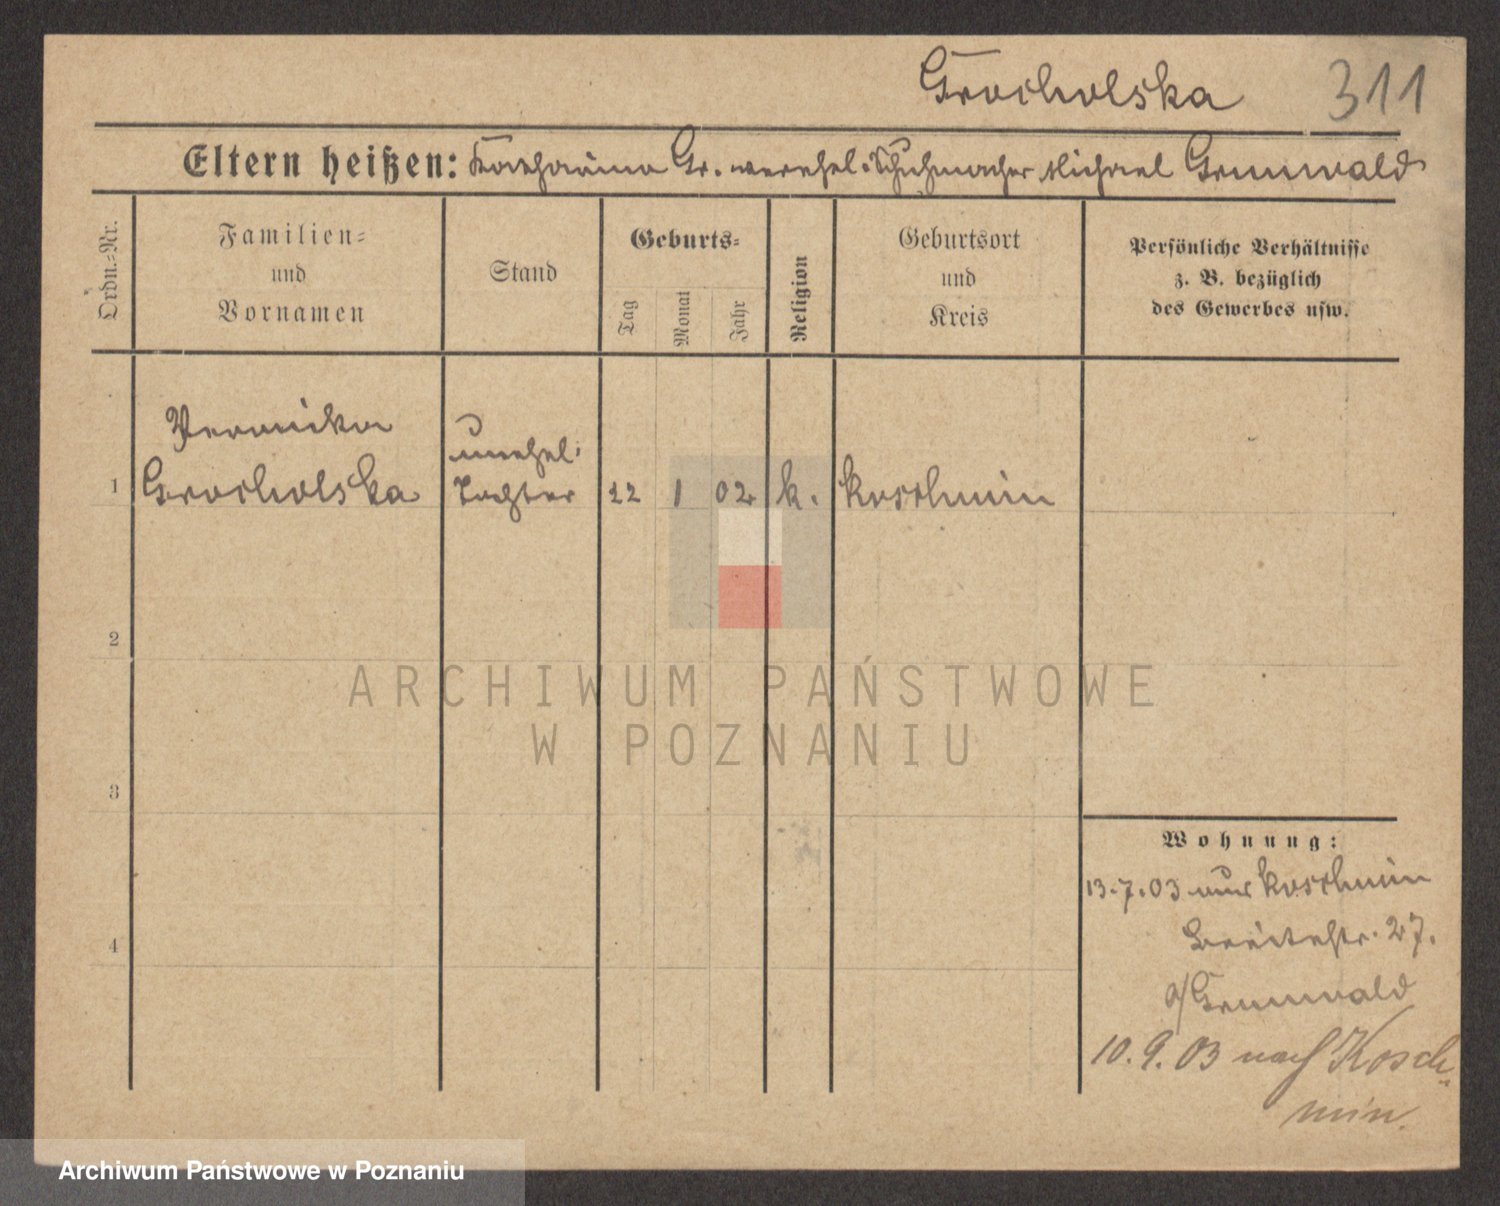 Grocholska 311
Eltern heißen: Katharina Gr. verehel. Schuhmacher Michael Grunwald
Ordn.-Nr.
Familien-
und
Vornamen
Stand
Geburts-
Tag
Monat
Jahr
Religion
Geburtsort
und
Kreis
Persönliche Verhältnisse
z. B. bezüglich
des Gewerbes usw.
Veronika
Grocholska
unehel.
Tochter
1
12 1 02 k. Koschmin
2
3
4
Wohnung:
13.7.03 aus Koschmin
Breitestr. 27.
b/Grunwald
10.9.03 nach Kosch-
min.
ARCHIWUM PAŃSTWOWE
W POZNANIU
Archiwum Państwowe w Poznaniu